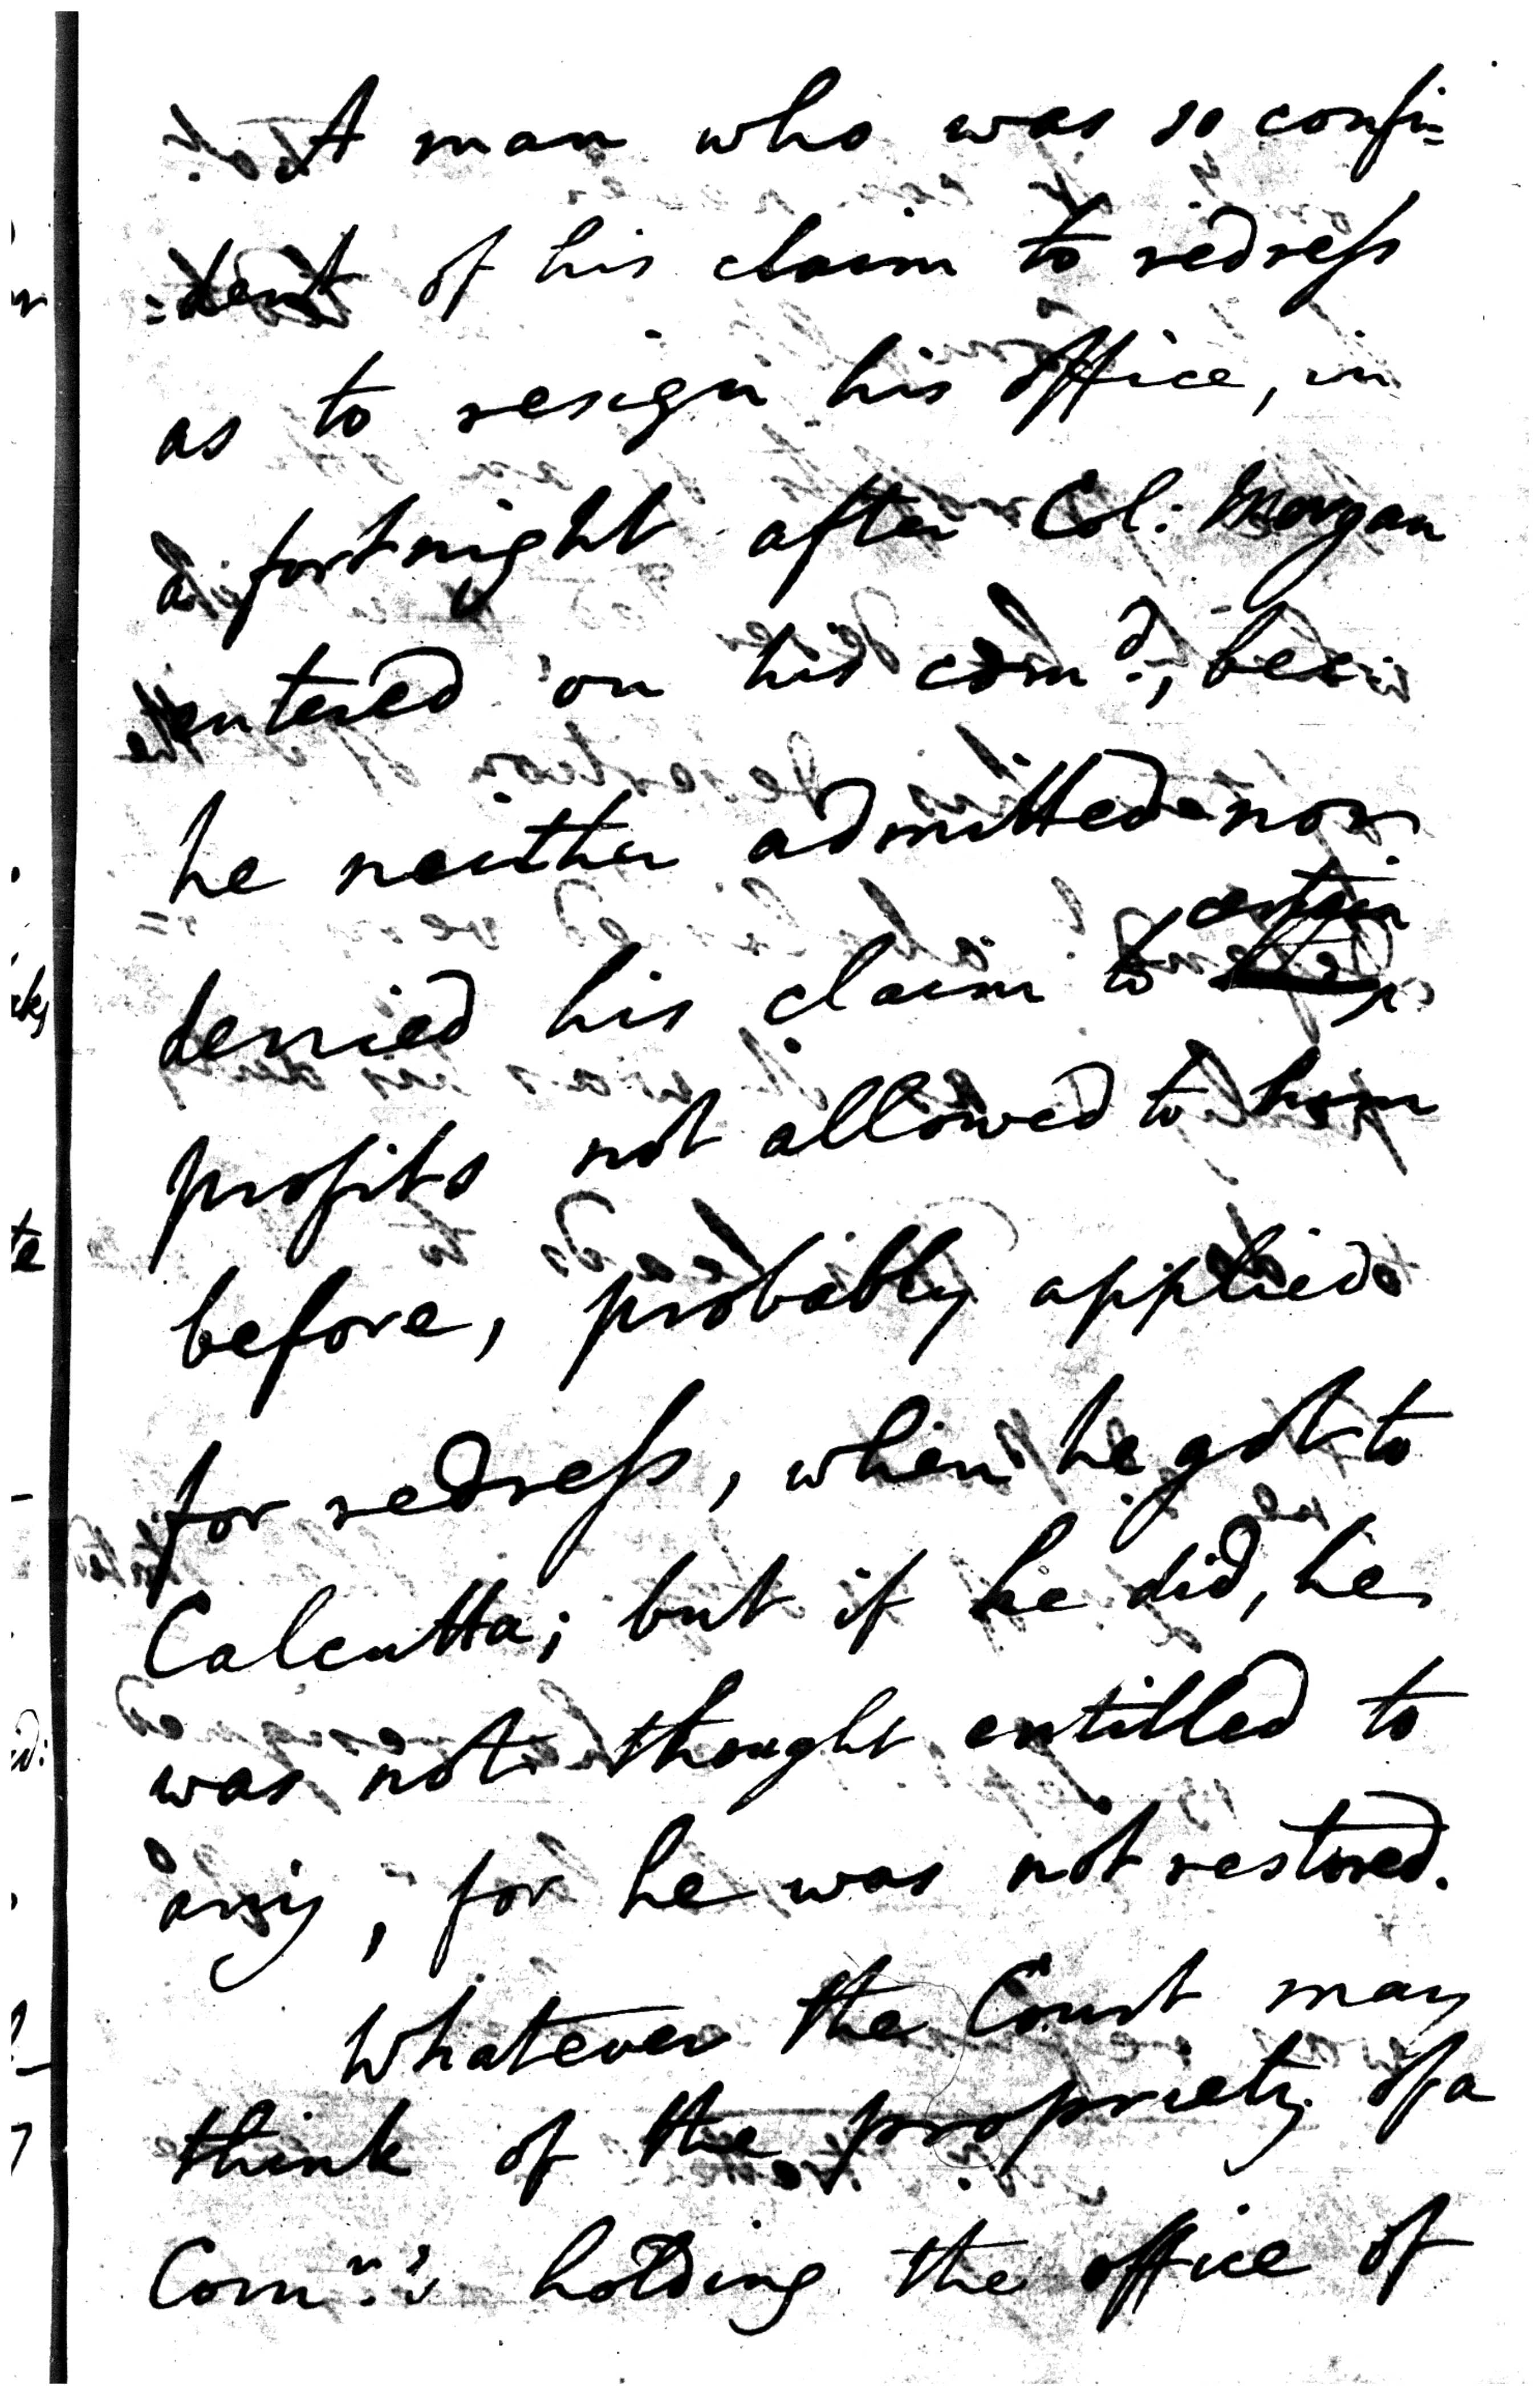 A man who was so confi=
=dent of his claim to redress
as to resign his office, in
a fortnight after Col: Morgan
entered on his comd., bec:
he neither admitted nor
denied his claim to certain
profits not allowed to him
before, probably applied
for redress, when he got to
Calcutta; but if he did, he
was not thought entitled to
any, for he was not restored.
Whatever the Court may
think of the propriety of a
holding the office of